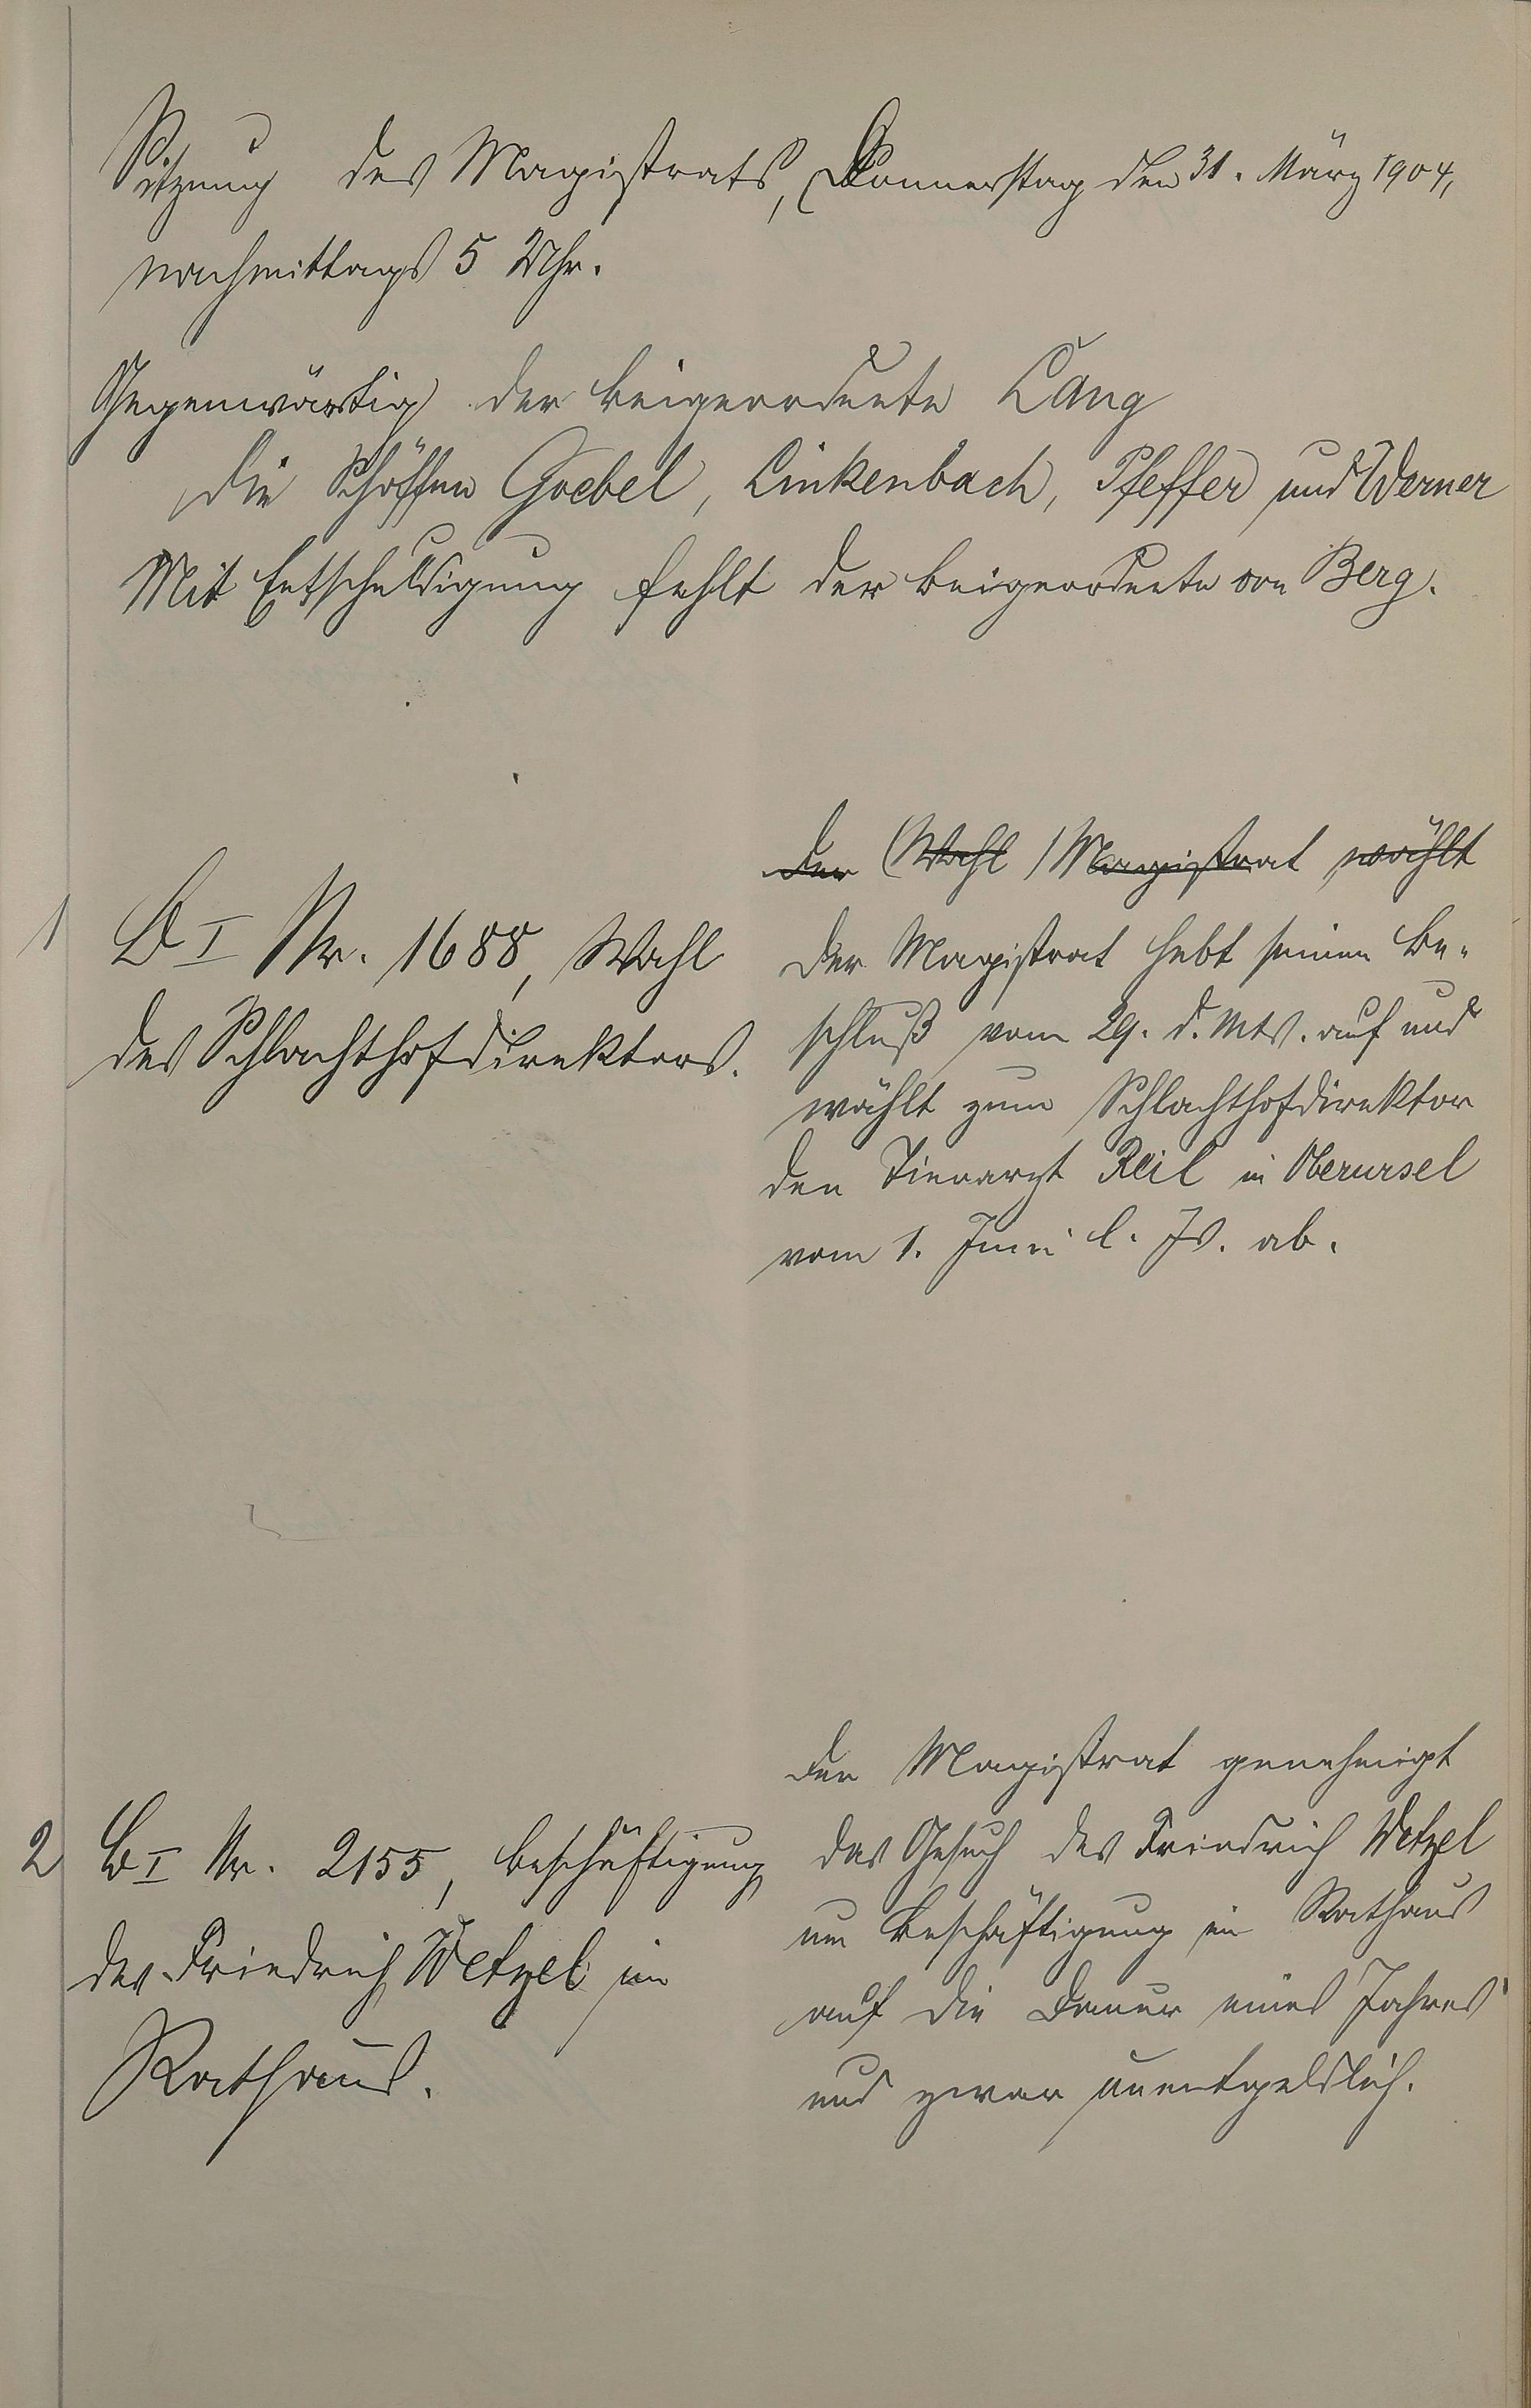 Sitzung des Magistrats, Donnerstag den 31. März 1904,
nachmittags 5 Uhr.
Gegenwärtig der Beigeordnete Lang
die Schöffen Goebel, Linkenbach, Pfeffer und Werner
Mit Entschuldigung fehlt der Beigeordnete von Berg.
1 B I Nr. 1688, Wahl
des Schlachthofdirektors.
Der Wahl Magistrat wählt
Der Magistrat hebt seinen Be-
schluß vom 29. d. Mts. auf und
wählt zum Schlachthofdirektor
den Tierarzt Reil in Oberursel
vom 1. Juni l. Js. ab.
2 B I Nr. 2155, Beschäftigung
des Friedrich Wetzel im
Rathaus.
Der Magistrat genehmigt
das Gesuch des Friedrich Wetzel
um Beschäftigung im Rathaus
auf die Dauer eines Jahres
und zwar unentgeldlich.